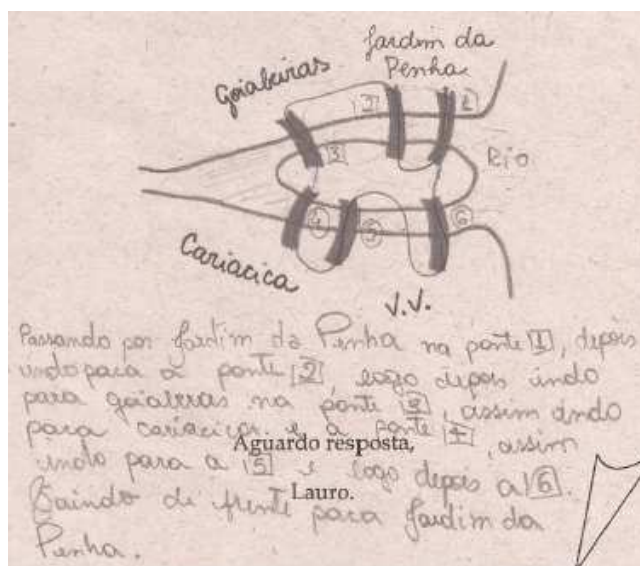 Goiabeiras
Jardim da
Penha
1
2
3
Rio
4
5
6
Cariacica
V.V.
Passando por Jardim da Penha na ponte 1, depois
indo para a ponte 2, logo depois indo
para goiabeiras na ponte 3, assim indo
para cariacica e a ponte 4, assim
Aguardo resposta,
indo para a 5 e logo depois a 6.
Lauro.
Saindo de frente para Jardim da
Penha.